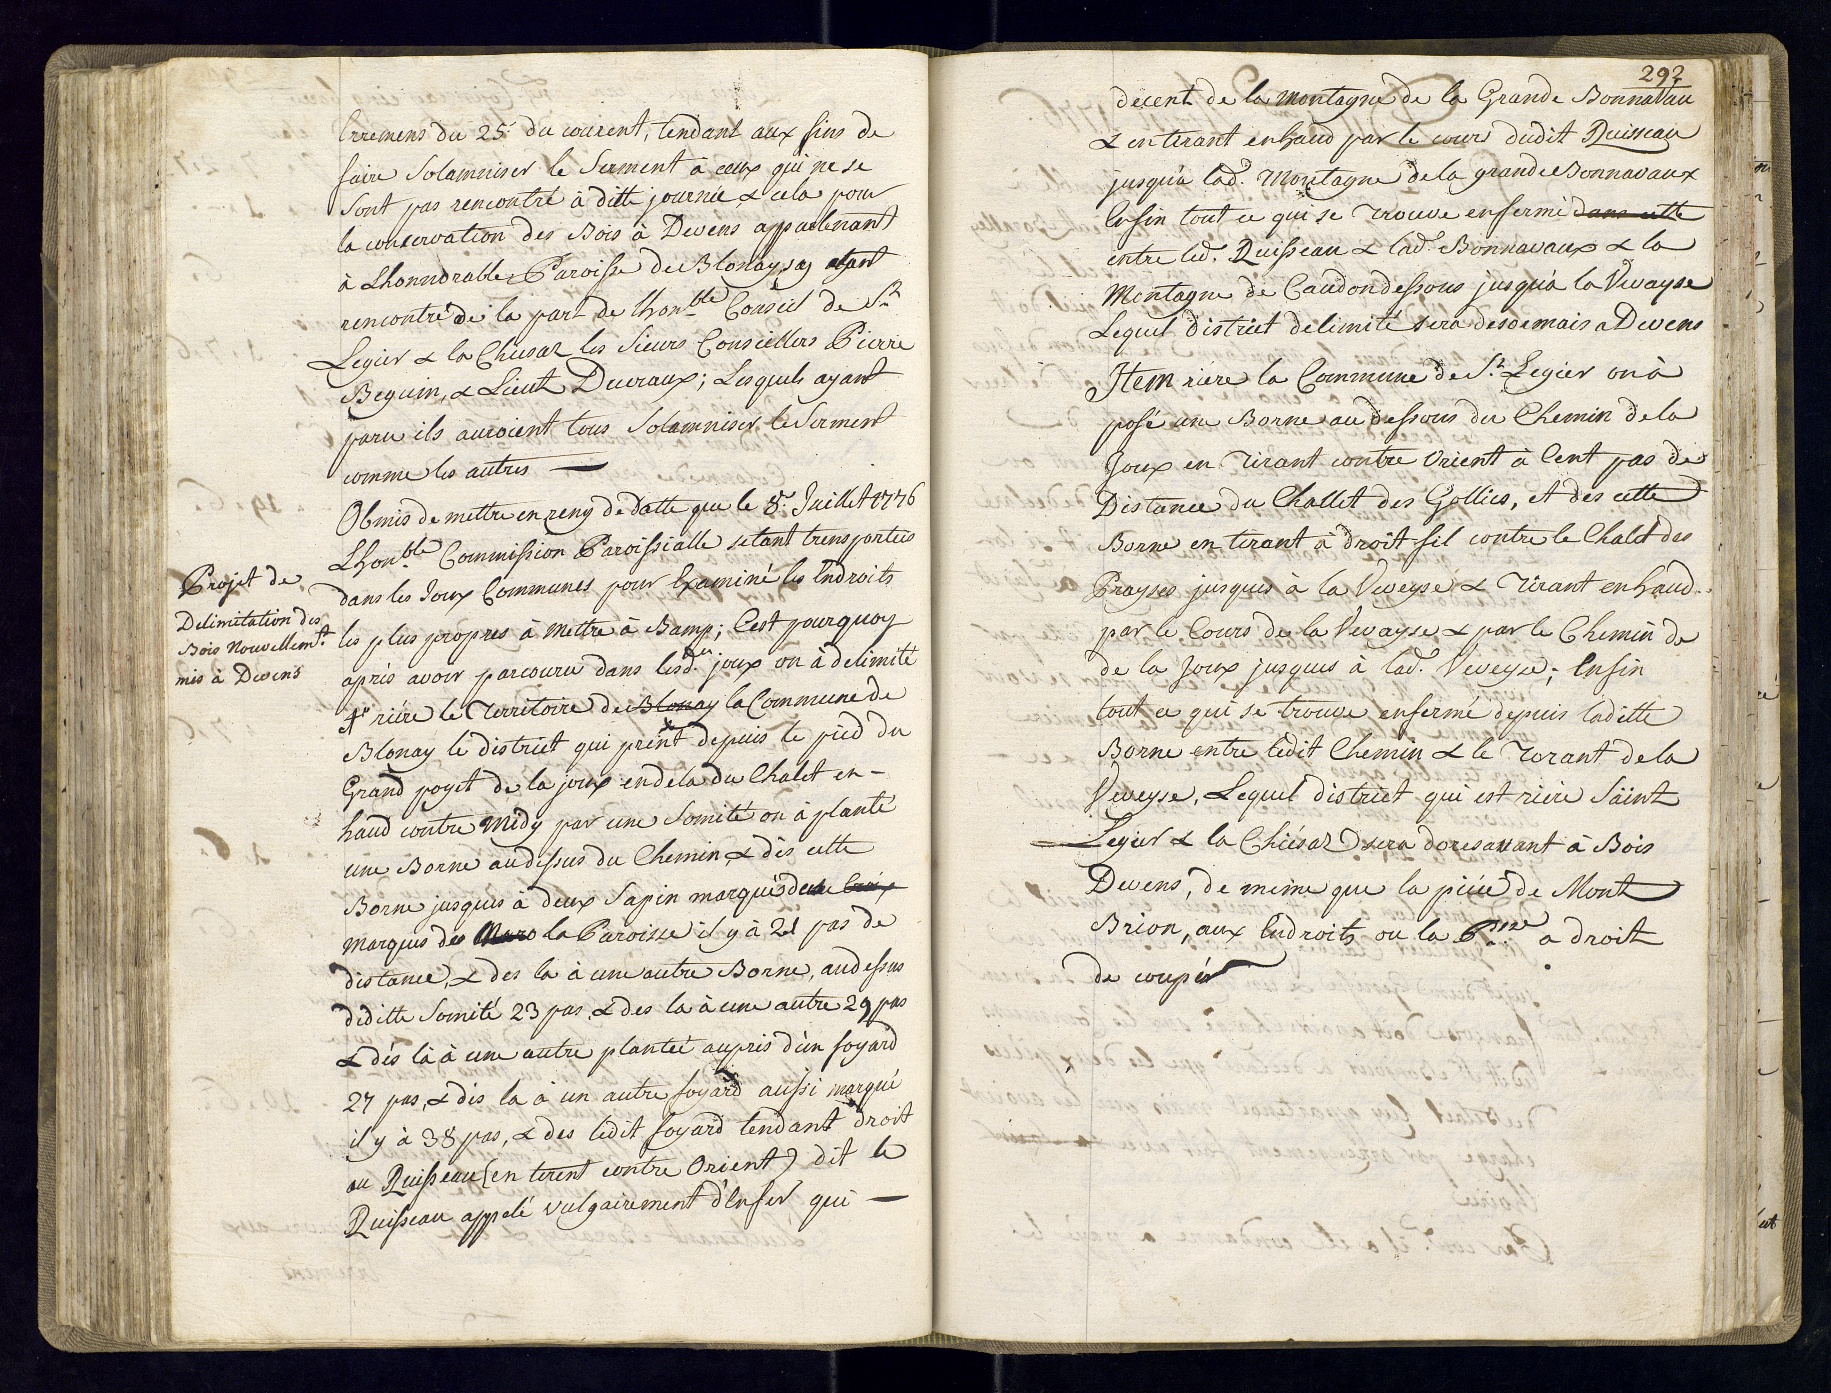 Erremens du 25.e du courent, tendant aux fins de
faire Solamniser le Serment à ceux qui ne se
Sont pas rencontré à ditte journée & cela pour
la conservation des Bois à Devens appartenant
à Lhonnorable Paroisse de Blonay, sy étant
rencontré de la part de lhon.ble Conseil de S.t
Legier & la Chiesaz les Sieurs Conseillers Pierre
Beguin, & Lieut Ducraux; Lesquels ayant
paru ils auroient tous Solamniser le Serment
comme les autres —
Obmis de mettre en reng de datte que le 8.e Juillet 1776
Lhon.ble Commission Paroissialle setant trensportées
Projet de
Delimitation des
Bois Nouvellem.t
mis à Devens
dans les Joux Communes pour Examiné les Endroits
les plus propres à Mettre à Bamp; Cest pourquoy
aprés avoir parcouru dans lesd.es joux on à delimité
1.º riére le Territoire de Blonay la Commune de
Blonay le district qui prent depuis le pied du
Grand poyet de la joux endela du Chalet en-
haud contre Midy par une Somité on à planté
une Borne audessus du Chemin, & dès cette
Borne jusques à deux Sapin marqués de la Croix
marques des Marc la Paroisse il y à 21 pas de
distance, & des la à une autre Borne, audessus
diditte Somité 23 pas. & des la à une autre 29 pas
& dés là à une autre plantée auprés d'un foyard
27 pas, & dés la à un autre foyard aussi marqué
il y à 38 pas, & des ledit foyard tendant droit
au Ruisseau (en tirent contre Orient) dit le
Ruisseau appelé vulgairement d'Enfer qui —
292
decent de la Montagne de la Grande Bonnavau
& en tirant enhaud par le cours dudit Ruisseau
jusquà lad.e Montagne de la grande Bonnavaux
Enfin tout ce qui se trouve enfermé dans cette
entre led.t Ruisseau & lad.e Bonnavaux & la
Montagne de Caudon dessous jusquà la Vevayse
Lequel district delimité sera desormais a Devens
Item riére la Commune de S.t Legier on à
posé une Borne au dessous du Chemin de la
Joux en Tirant contre Orient à Cent pas de
Distance du Challet des Gollies, et des cette
Borne en tirant à droit fil contre le Chalet des
Prayses jusques à la Veveyse & Tirant enhaud
par le Cours de la Vevayse & par le Chemin de
de la Joux jusques à lad.e Veveyse; Enfin
tout ce qui se trouve enfermé depuis laditte
Borne entre ledit Chemin & le Torant de la
Veveyse, Lequel district qui est riére Saint
Legier & la Chiésaz sera doresavant à Bois
Devens, de méme que la piéce de Mont
Brion, aux Endroits ou la P.sse a droit
de coupér